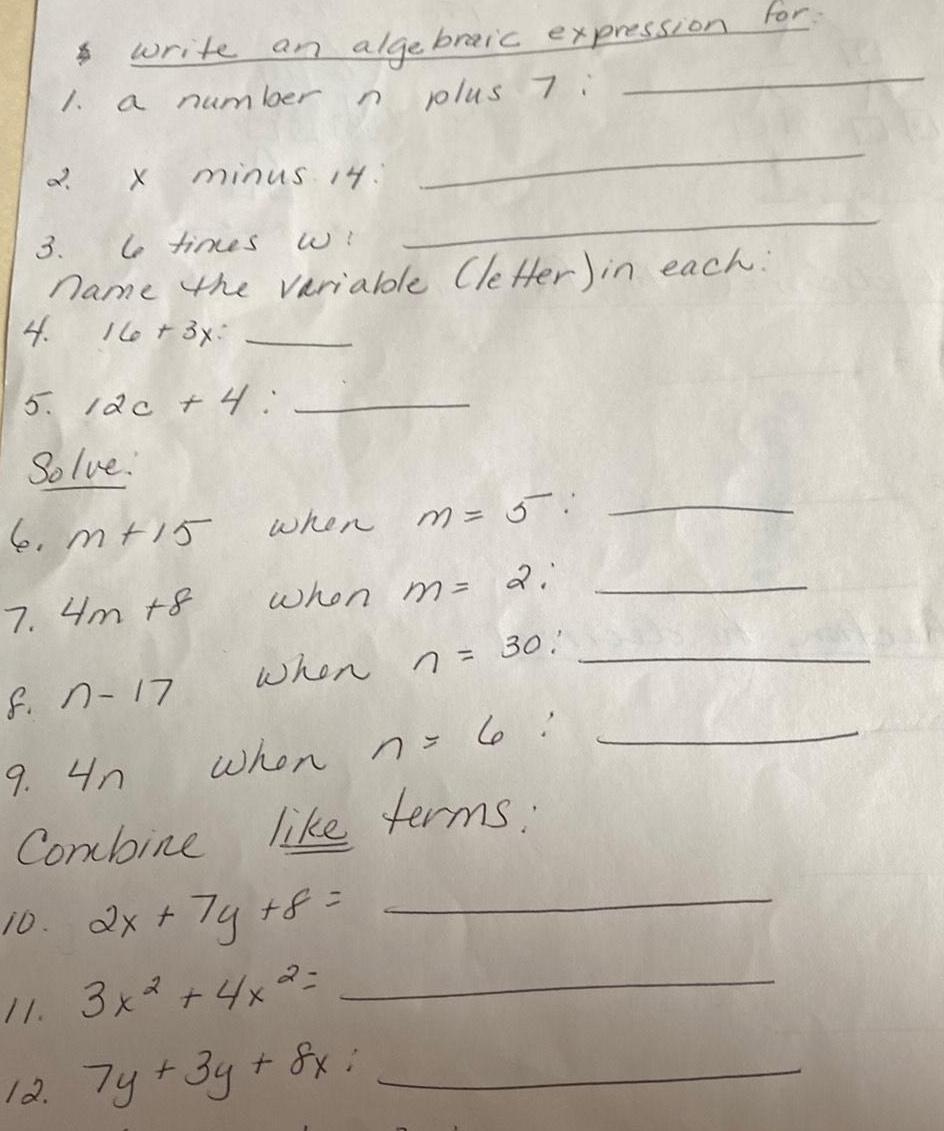 $ write an algebraic expression for:
1. a number n plus 7:
2. x minus 14:
3. 6 times w:
Name the variable (letter) in each:
4. 16 + 3x:
5. 12c + 4:
Solve:
6. m + 15 when m = 5:
7. 4m + 8 when m = 2:
8. n - 17 when n = 30:
9. 4n when n = 6:
Combine like terms:
10. 2x + 7y + 8 =
11. 3x² + 4x² =
12. 7y + 3y + 8x: